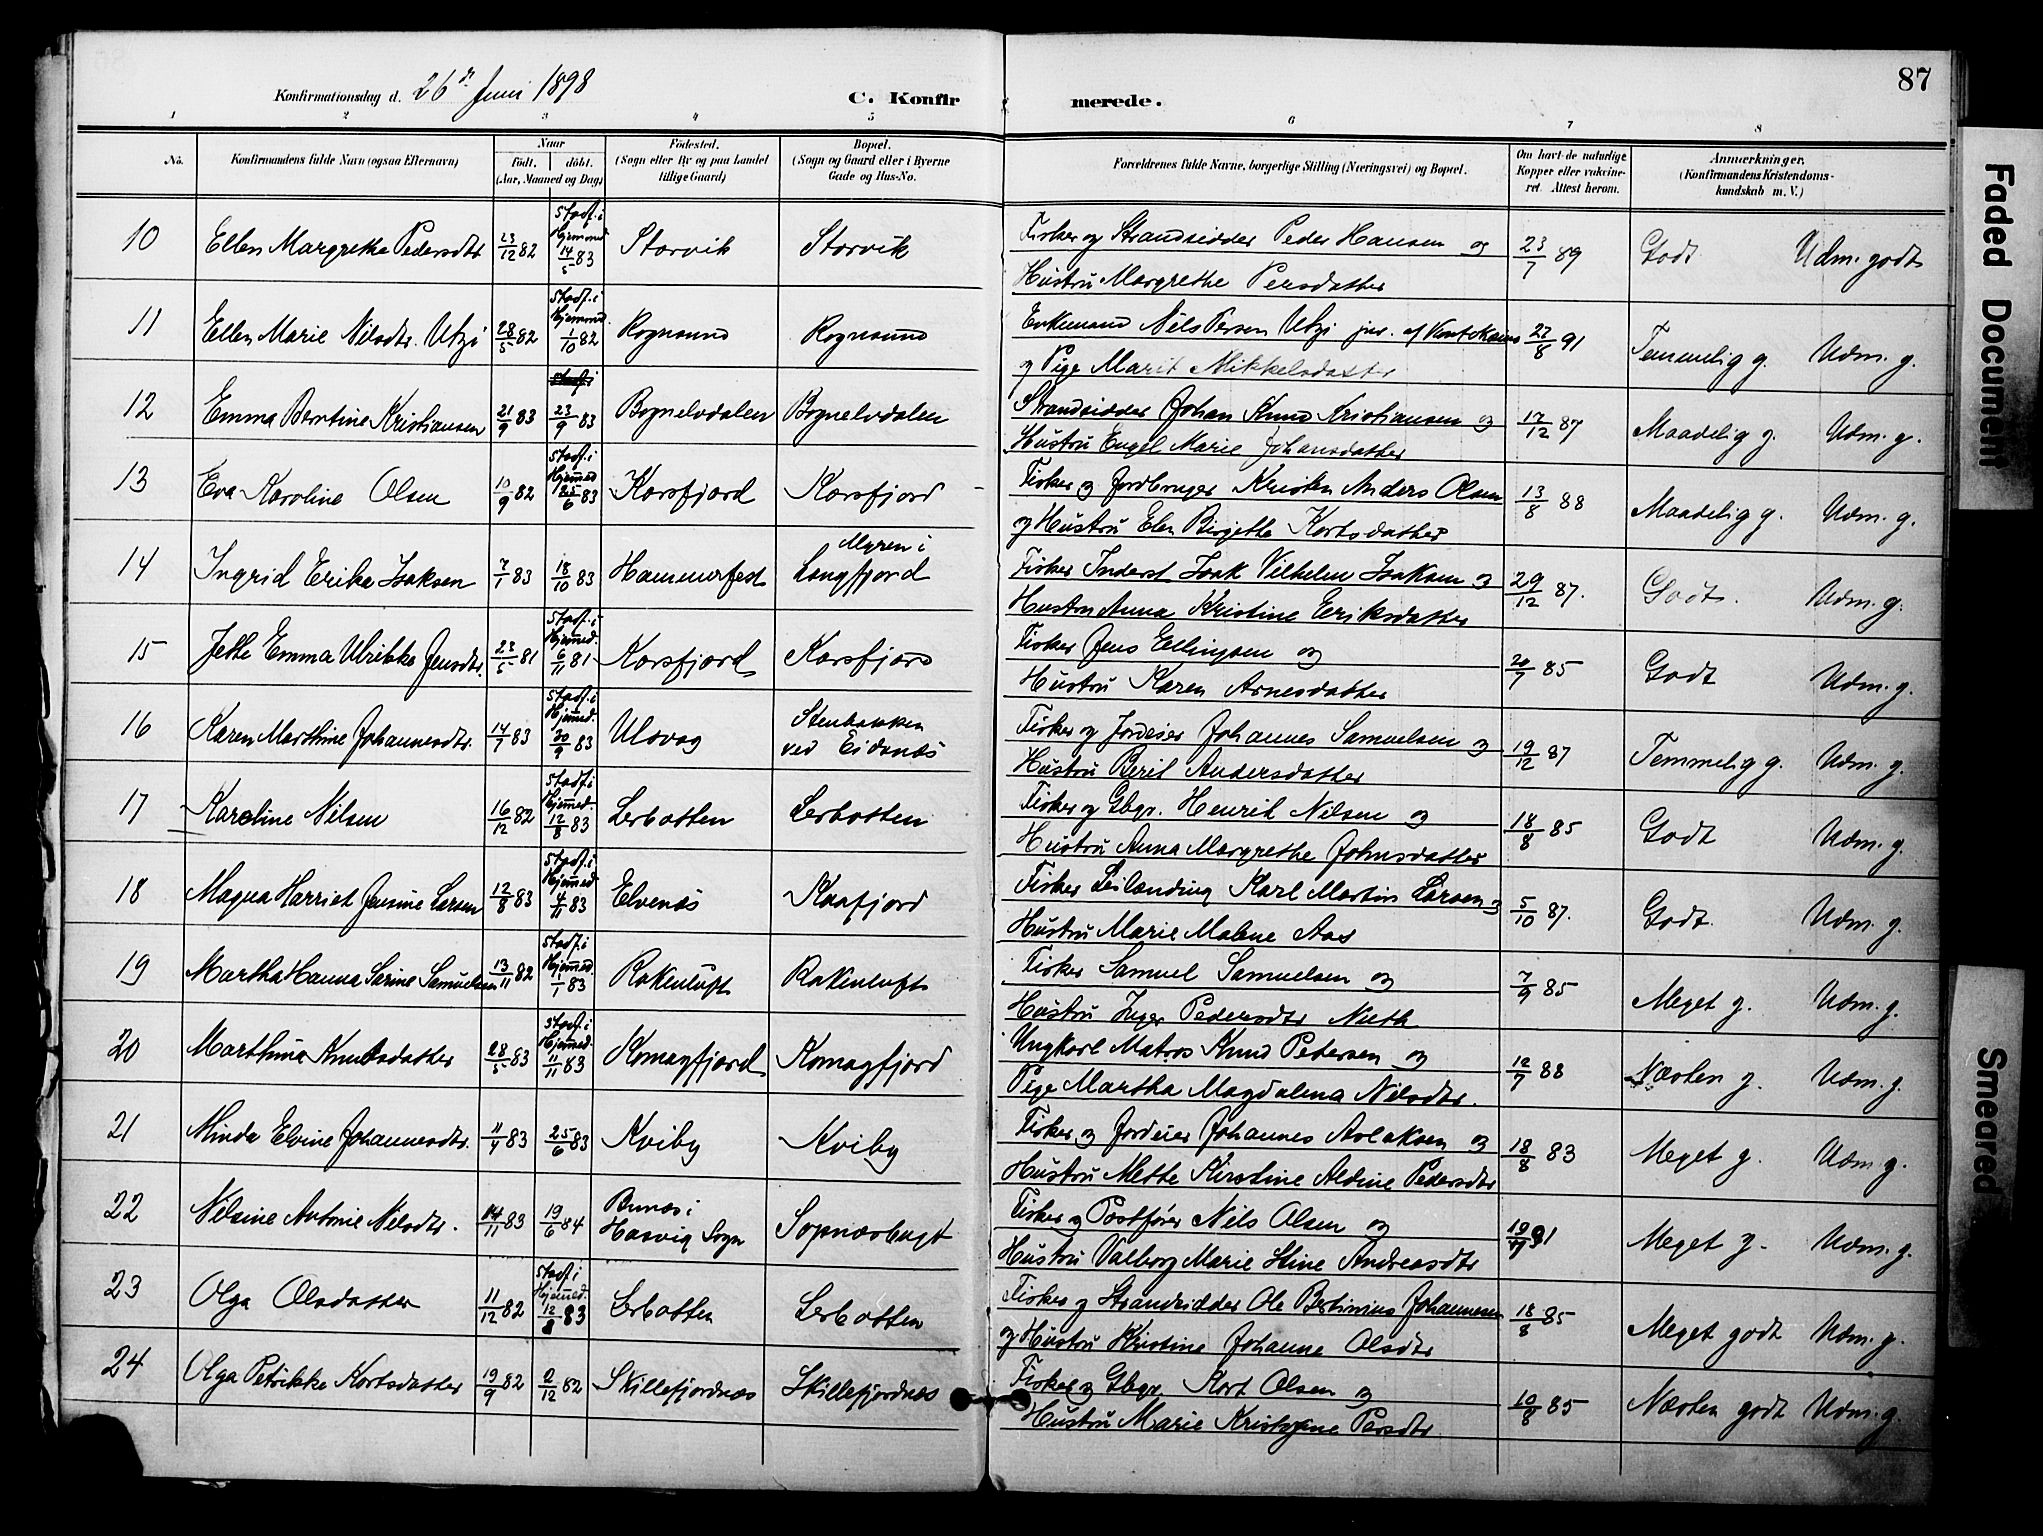 87
Konfirmationsdag d. 26de Juni 1898 C. Konfirmerede.
1 2 3 4 5 6 7 8
No. Konfirmandens fulde Navn (ogsaa Efternavn) Naar født. døbt. (Aar, Maaned og Dag) Fødested. (Sogn eller By og paa Landet tillige Gaard) Bopæl. (Sogn og Gaard eller i Byerne Gade og Hus-No. Forældrenes fulde Navne, borgerlige Stilling (Næringsvei) og Bopæl. Om havt de naturlige Kopper eller vakcineret. Attest herom. Anmærkninger. (Konfirmandens Kristendomskundskab m. V.)
10 Ellen Margrethe Pedersdtr 23/12 82 Stadf. i Hjemmed. 14/5 83 Storvik Storvik Fisker og Strandsidder Peder Hansen og 23/7 89 Godt Udm. godt
Hustru Margrethe Persdatter
11 Ellen Marie Nilsdtr. Utzi 28/5 82 Stadf. i Hjemmed. 1/10 82 Rognsund Rognsund Enkemand Nils Persen Utzi jur. af Kautokeino 27/8 91 Temmelig g. Udm. g.
og Pige Marit Mikkelsdatter
12 Emma Berntine Kristiansen 21/9 83 23/9 83 Bognelvdalen Bognelvdalen Strandsidder Johan Knud Kristiansen og 17/12 87 Maadelig g. Udm. g.
Hustru Engel Marie Johansdatter
13 Eva Karoline Olsen 10/9 82 Stadf. i Hjemmed /6 83 Korsfjord Korsfjord Fisker og Jordbruger Kristen Anders Olsen 13/8 88 Maadelig g. Udm. g.
og Hustru Elen Birgithe Kortsdatter
14 Ingrid Erika Isaksen 7/1 83 18/10 83 Hammerfest Myren i Langfjord Fisker Inderst Isak Vilhelm Isaksen og 29/12 87. Godt. Udm. g.
Hustru Anna Kristine Eeriksdatter
15 Jette Emma Ulrikke Jensdtr. 23/5 81 Stadf. i Hjemmed. 6/11 81 Korsfjord Korsfjord Fisker Jens Ellingsen og 20/7 85 Godt Udm. g.
Hustru Karen Arnesdatter
16 Karen Marthine Johannesdtr. 14/7 83 Stadf. i Hjemmed. 30/9 83 Ulsvog Stenbakken ved Eidsnæs Fisker og Jordeier Johannes Samuelsen og 19/12 87 Temmelig g. Udm. g.
Hustru Berit Andersdatter
17 Karoline Nilsen 16/12 82 Stadf. i Hjemmed. 12/8 83 Lerbotten Lerbotten Fisker og Gbgr. Henrik Nilsen og 18/8 85 Godt Udm. g.
Hustru Anna Margrethe Johnsdatter
18 Magna Harriet Jensine Larsen 12/8 83 Stadf. i Hjemmed. 4/11 83 Elvenæs Kaafjord Fisker Leilænding Karl Martin Larsen og 5/10 87. Godt. Udm. g.
Hustru Marie Malene Aas
19 Martha Hanna Sarine Samuelsen 13/11 82 Stadf. i Hjemmed. 1/1 83 Rakenluft Rakenluft Fisker Samuel Samuelsen og 7/9 85 Meget g. Udm. g.
Hustru Inger Pedersdtr Nieth
20 Marthina Knudsdatter 28/5 83 Stadf. i Hjemmed. 11/11 83 Komagfjord Komagfjord Ungkarl Matros Knud Pedersen og 12/7 88 Næsten g. Udm. g.
Pige Martha Magdalena Nilsdtr.
21 Minda Elvine Johannesdtr. 11/4 83 25/6 83 Kviby Kviby Fisker og Jordeier Johannes Aslaksen og 18/8 83 Meget g. Udm. g.
Hustru Mette Kirstine Aldine Pedersdtr
22 Nilsine Antonie Nilsdtr. 14/11 83 19/6 84 Bunæs i Hasvig Sogn Sopnæsbugt Fisker og Postfører Nils Olsen og 91 Meget g. Udm. g.
Hustru Valborg Marie Stine Andreasdtr
23 Olga Olsdatter 11/12 82 Stadf. i Hjemmed. 12/8 83 Lerbotten Lerbotten Fisker og Strandsidder Ole Bertinius Johannesen 18/8 85 Meget godt Udm. g.
og Hustru Kristine Johanne Olsdtr
24 Olga Petrikke Kortsdatter 19/9 82 2/12 82 Skillefjordnæs Skillefjordnæs Fisker og Gbgr. Kort Olsen og 10/8 85 Næsten godt Udm. g.
Hustru Marie Kristjane Persdtr.
Faded Document
Smeared